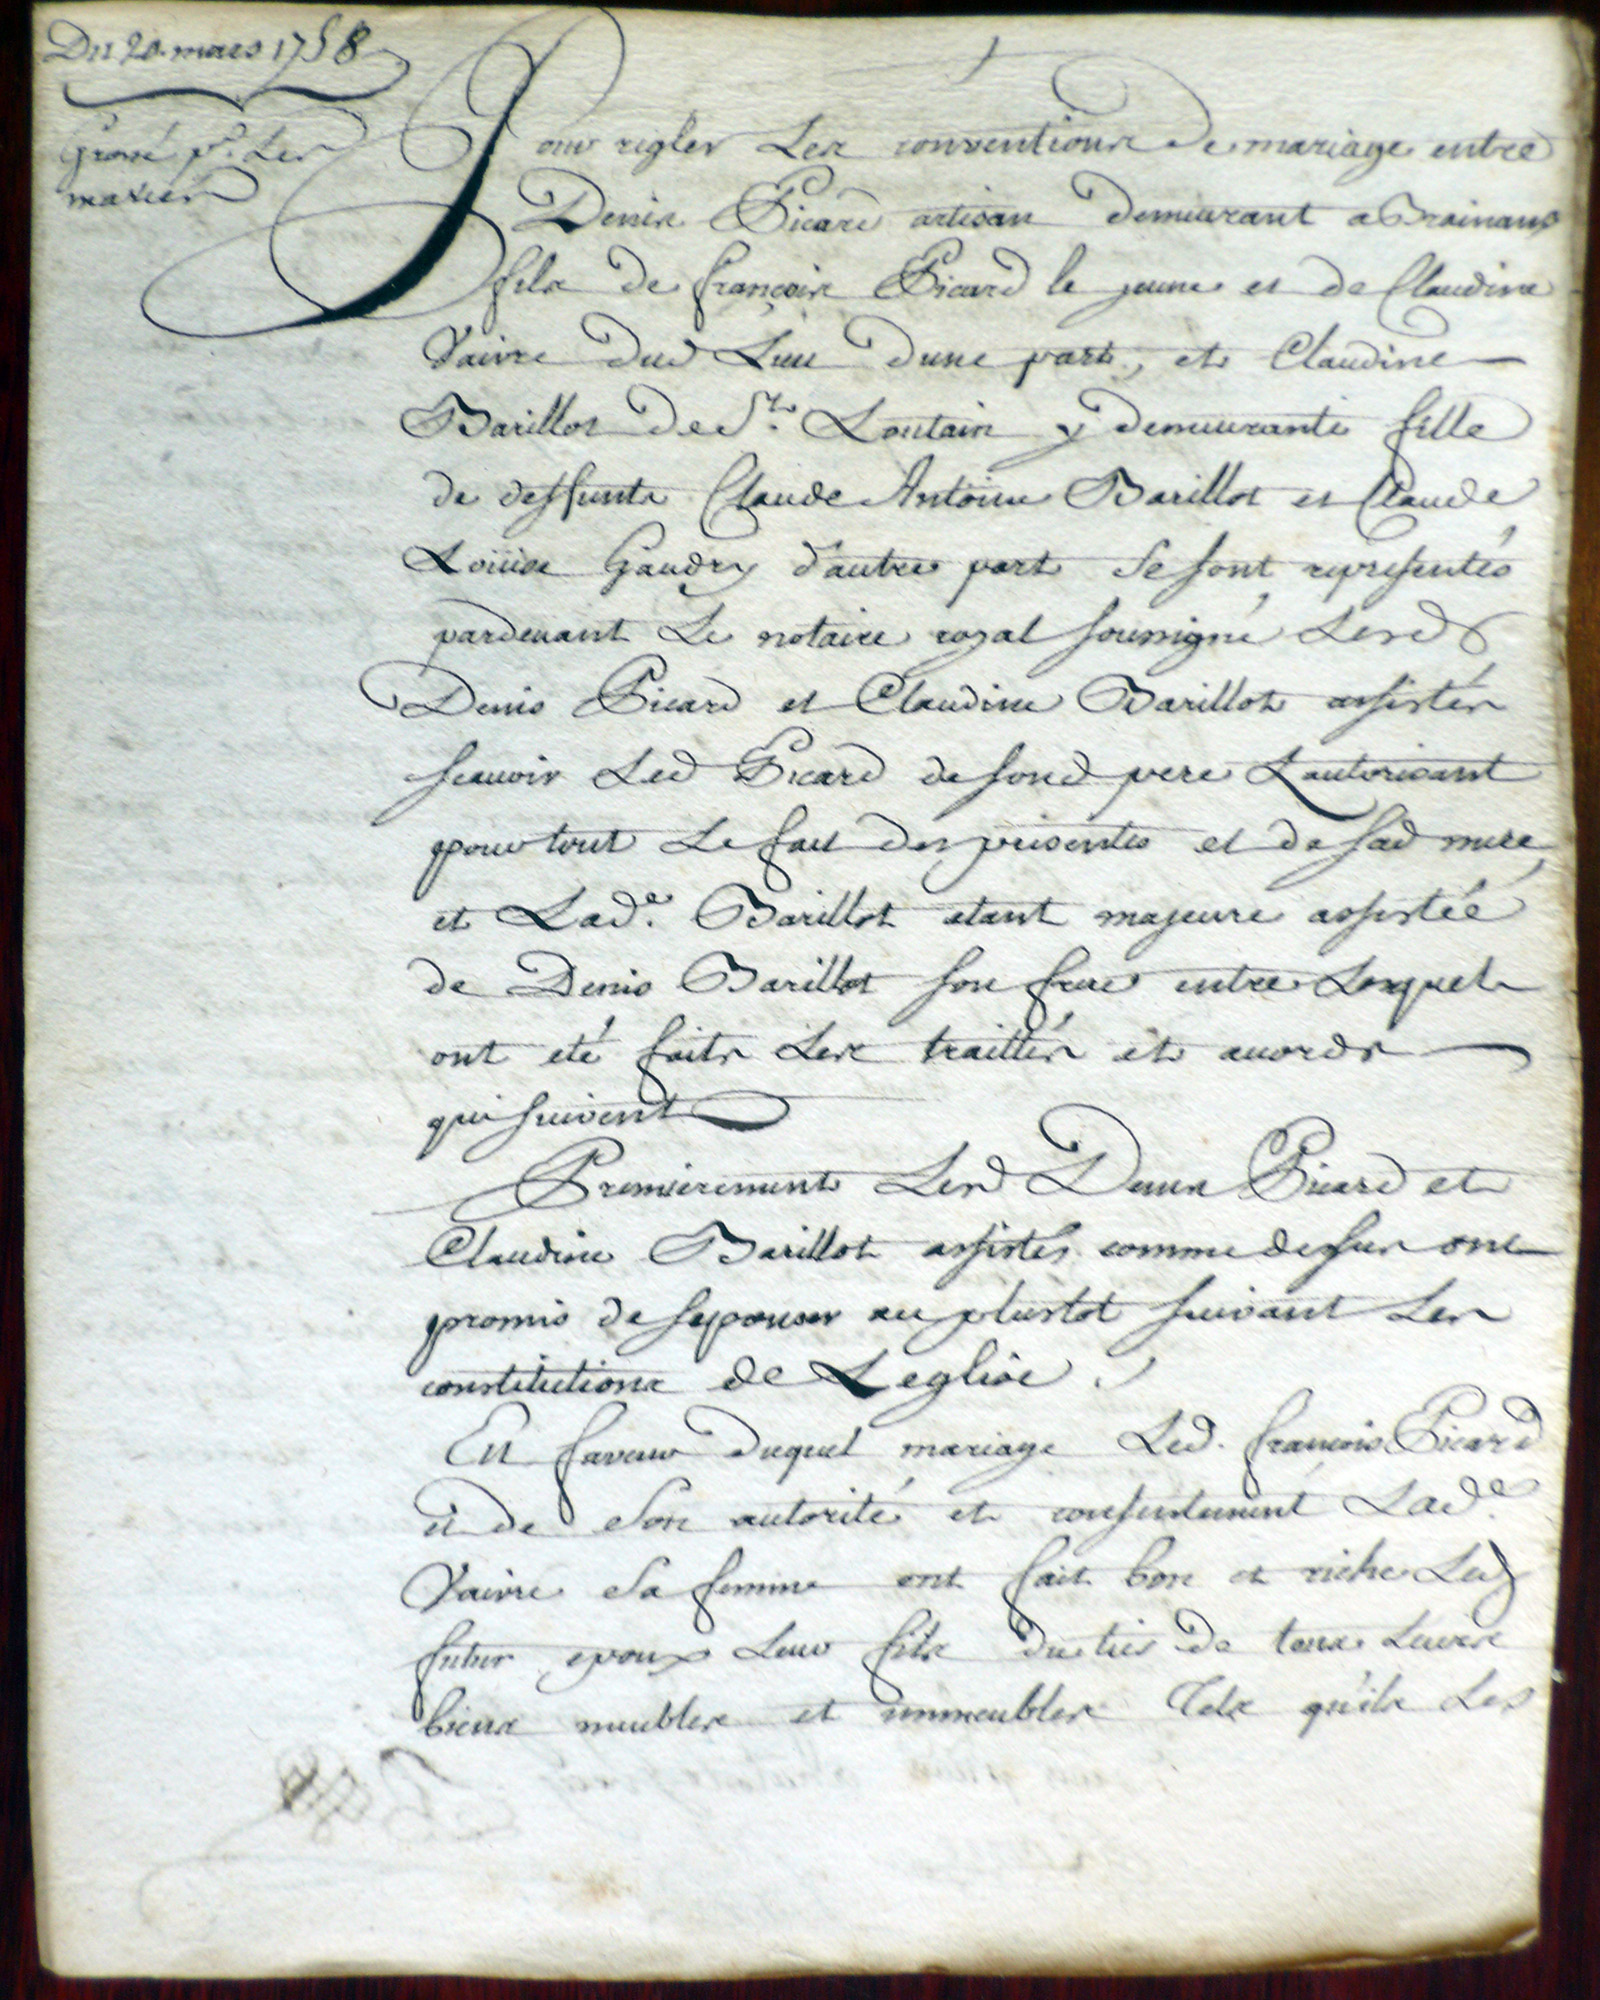 Du 20 mars 1758
Grossé pr. Les
mariés
Pour regler Les conventions de mariage entre
Denis Picard artisan demeurant a Brainans
fils de françois Picard le jeune et de Claudine
Vaivre dud Lieu dune part, et Claudine
Barillot de St. Loutain y demeurante fille
de deffunts Claude Antoine Barillot et Claude
Loüise Gaudry d'autre part se sont representés
pardevant Le notaire royal soussigné Lesd
Denis Picard et Claudine Barillot assistés
scauoir Led Picard de sond pere Lautorisant
pour tout Le fait des presentes et de sad mere,
et Lade. Barillot etant majeure assistée
de Denis Barillot son frere entre Lesquels
ont eté faits Les traittés et acords
qui suivent
Premierement Lesd Denis Picard et
Claudine Barillot assistés comme dessus ont
promis de sepouser au plustot suivant Les
constitutions de Leglise.
En faveur duquel mariage Led. francois Picard
et de son autorité et consentement Lade.
Vaivre sa femme ont fait bon et riche Led
futur epoux Leur fils du tier de tous Leurs
biens meubles et immeubles Tels qu'ils Les